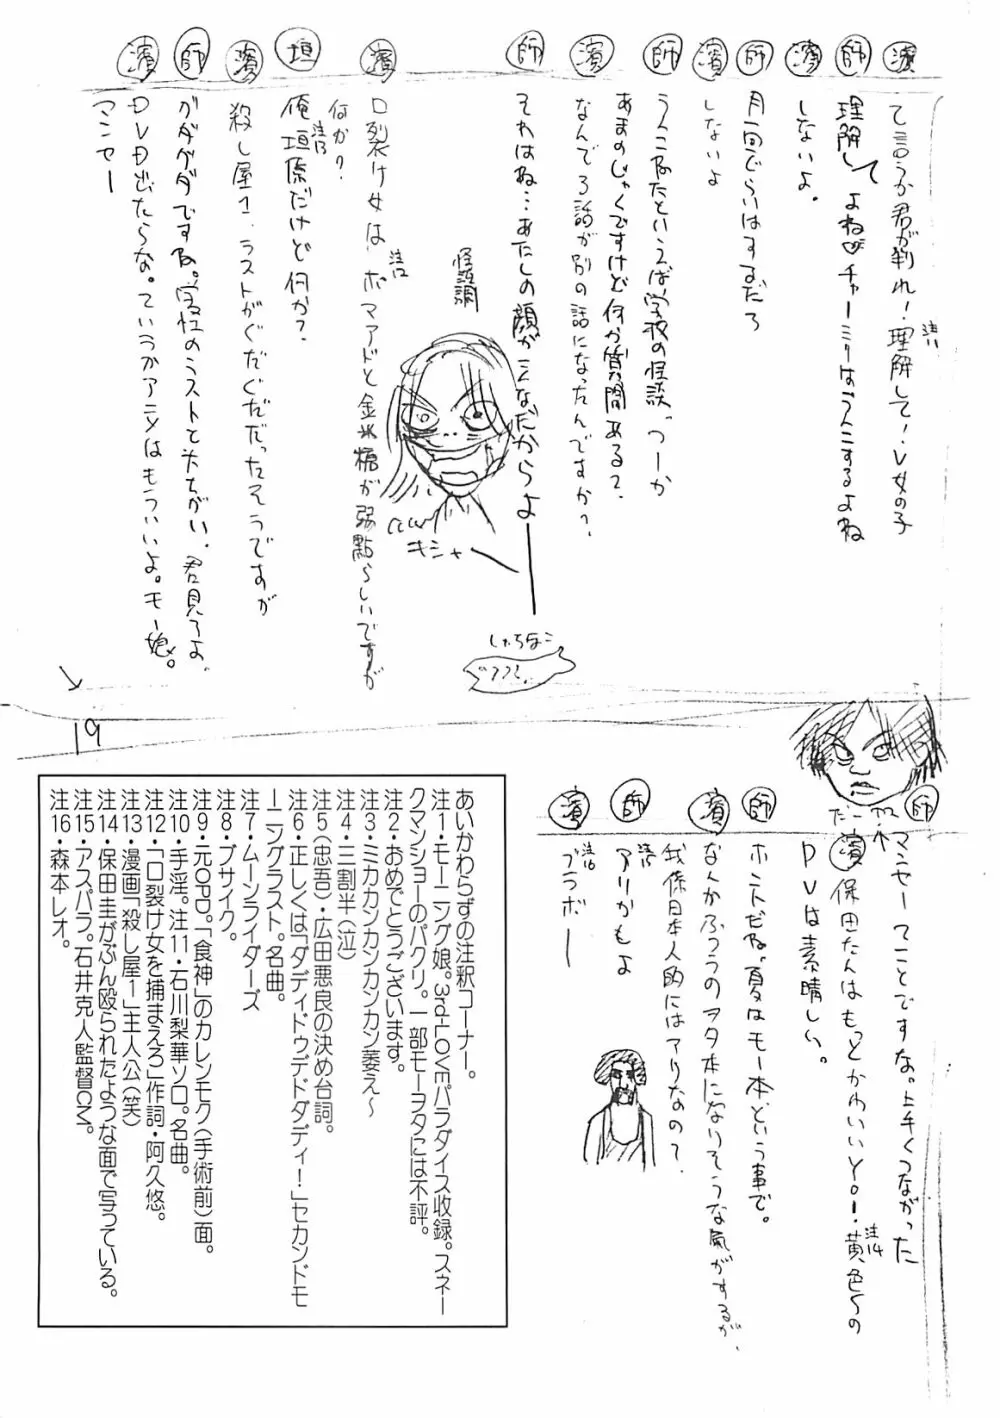 濱 て言うか君が判れ!理解して!、V女の子 注11
師 理解してよね♡チャーミーはうんこするよね
濱 しないよ。
師 月一回ぐらいはするだろ
濱 しないよ
師 うんこ
あまのじゃくですけど何か質問ある?
濱 なんで3話が別の話になったんですか?
師 それはね…あたしの顔がこんなだからよ――
怪談調
キシャー
濱 口裂け女は、ポマアドと金米糖が弱點らしいですが 注12
何か?
垣 俺垣原だけど何か? 注13
濱 殺し屋1、ラストがぐだぐだだったそうですが
師 グダグダですな。
君見ろよ、
濱 DVD出たらな。ていうかアニメはもういいよ。モー娘。
マンセー
19
師 マンセーってことですな。上手くつながった
濱 保田たんはもっとかわいいYO!・黄色5の 注14
PVは素晴しい。
師 ホントだね。夏はモー本という事で。
濱 なんかふつうのヲタ本になりそうな気がするが、
我係日本人的にはアリなの?
師 アリかもよ 注15
濱 ブラボー 注16
あいかわらずの注釈コーナー。
注1・モーニング娘。3rd-LOVEパラダイス収録。スネー
クマンショーのパクリ。一部モーヲタには不評。
注2・おめでとうございます。
注3・ミカカンカンカンカン萎え〜
注4・三割半(泣)
注5(忠吾)・広田悪良の決め台詞。
注6・正しくは「ダディドゥデドダディ!」セカンドモ
ーニングラスト。名曲。
注7・ムーンライダーズ
注8・ブサイク。
注9・元OPD。「食神」のカレンモク(手術前)面。
注10・手淫。注11・石川梨華ソロ。名曲。
注12・「口裂け女を捕まえろ」作詞・阿久悠。
注13・漫画「殺し屋1」主人公(笑)
注14・保田圭がぶん殴られたような面で写っている。
注15・アスパラ。石井克人監督CM。
注16・森本レオ。